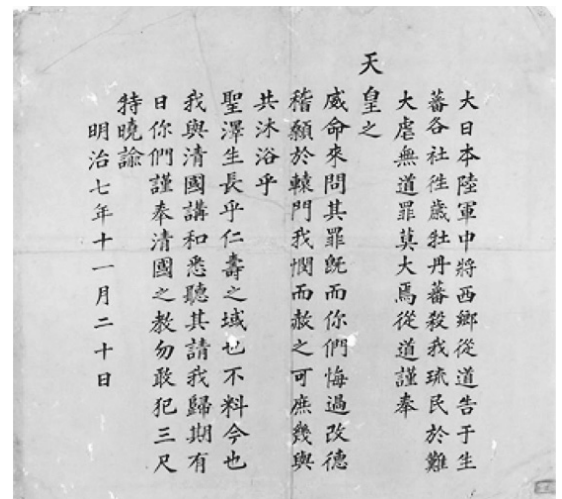 大日本陸軍中將西鄉從道告于生
蕃各社徃歲牡丹蕃殺我琉民於難
大虐無道罪莫大焉從道謹奉
天皇之
威命來問其罪旣而你們悔過改德
稽顙於轅門我憫而赦之可庶幾與
共沐浴乎
聖澤生長乎仁壽之域也不料今也
我與清國講和悉聽其請我歸期有
日你們謹奉清國之教勿敢犯三尺
特曉諭
明治七年十一月二十日